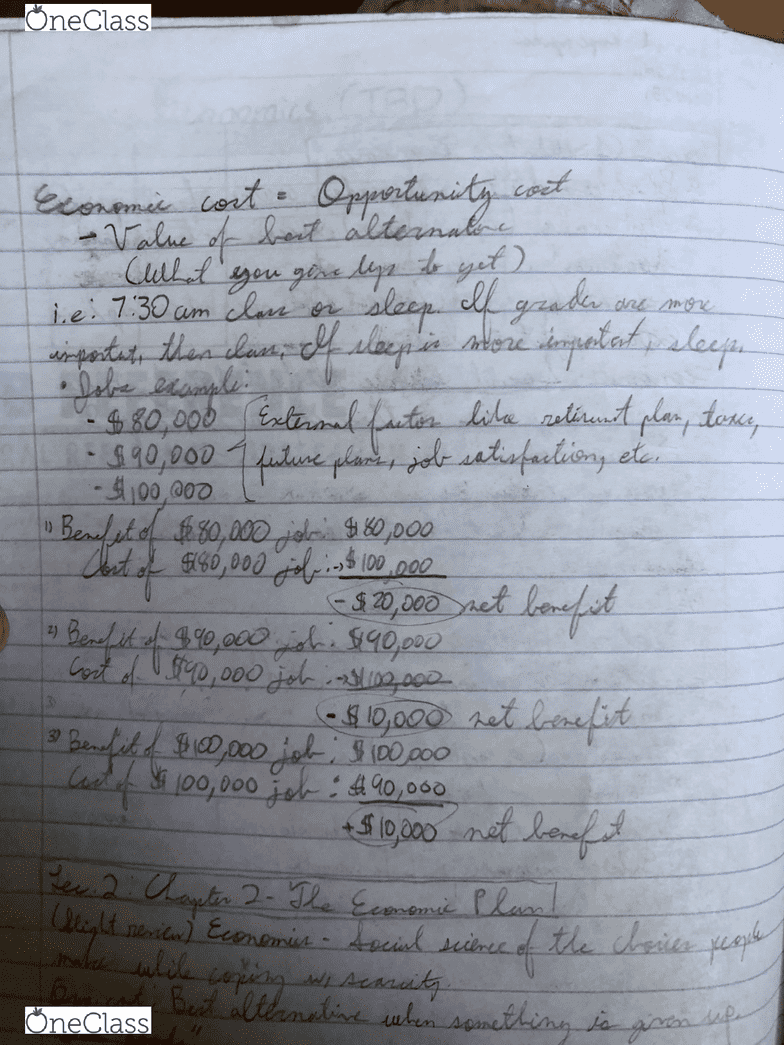 OneClass
Economic cost = Opportunity cost
- Value of best alternative
(What you give up to get)
i.e: 7:30 am class or sleep. If grades are more
important, then class, If sleep is more important, sleep.
• Jobs example:
- $80,000 External factor like retirement plan, taxes,
- $90,000 future plans, job satisfaction, etc.
- $100,000
1) Benefit of $80,000 job: $80,000
Cost of $80,000 job: -> $100,000
- $20,000 net benefit
2) Benefit of $90,000 job: $90,000
Cost of $90,000 job: -> $100,000
- $10,000 net benefit
3) Benefit of $100,000 job: $100,000
Cost of $100,000 job: $90,000
+ $10,000 net benefit
Lec. 2: Chapter 2 - The Economic Plan!
(Slight review) Economics - Social science of the choices people
make while coping w/ scarcity.
Best alternative when something is given up.
OneClass